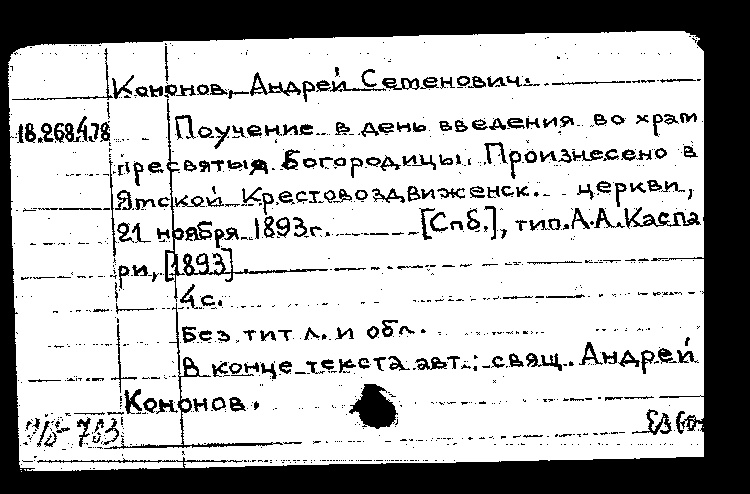 Кононов, Андрей Семенович.
18.268.4.78 Поучение в день введения во храм
пресвятыя Богородицы. Произнесено в
Ятской Крестовоздвиженск. церкви,
21 ноября 1893г. [Спб.], тип. А.А. Каспа
ри, [1893].
4 с.
Без тит л. и обл.
В конце текста авт.: свящ. Андрей
Кононов.